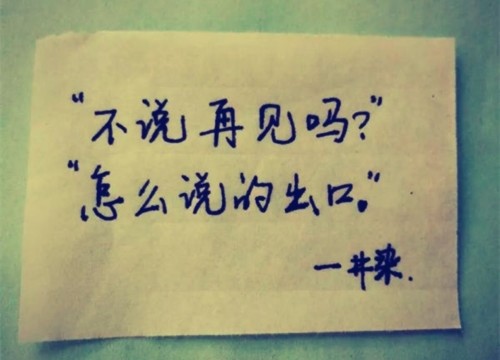 “不说再见吗？”
“怎么说的出口。”
一井染.